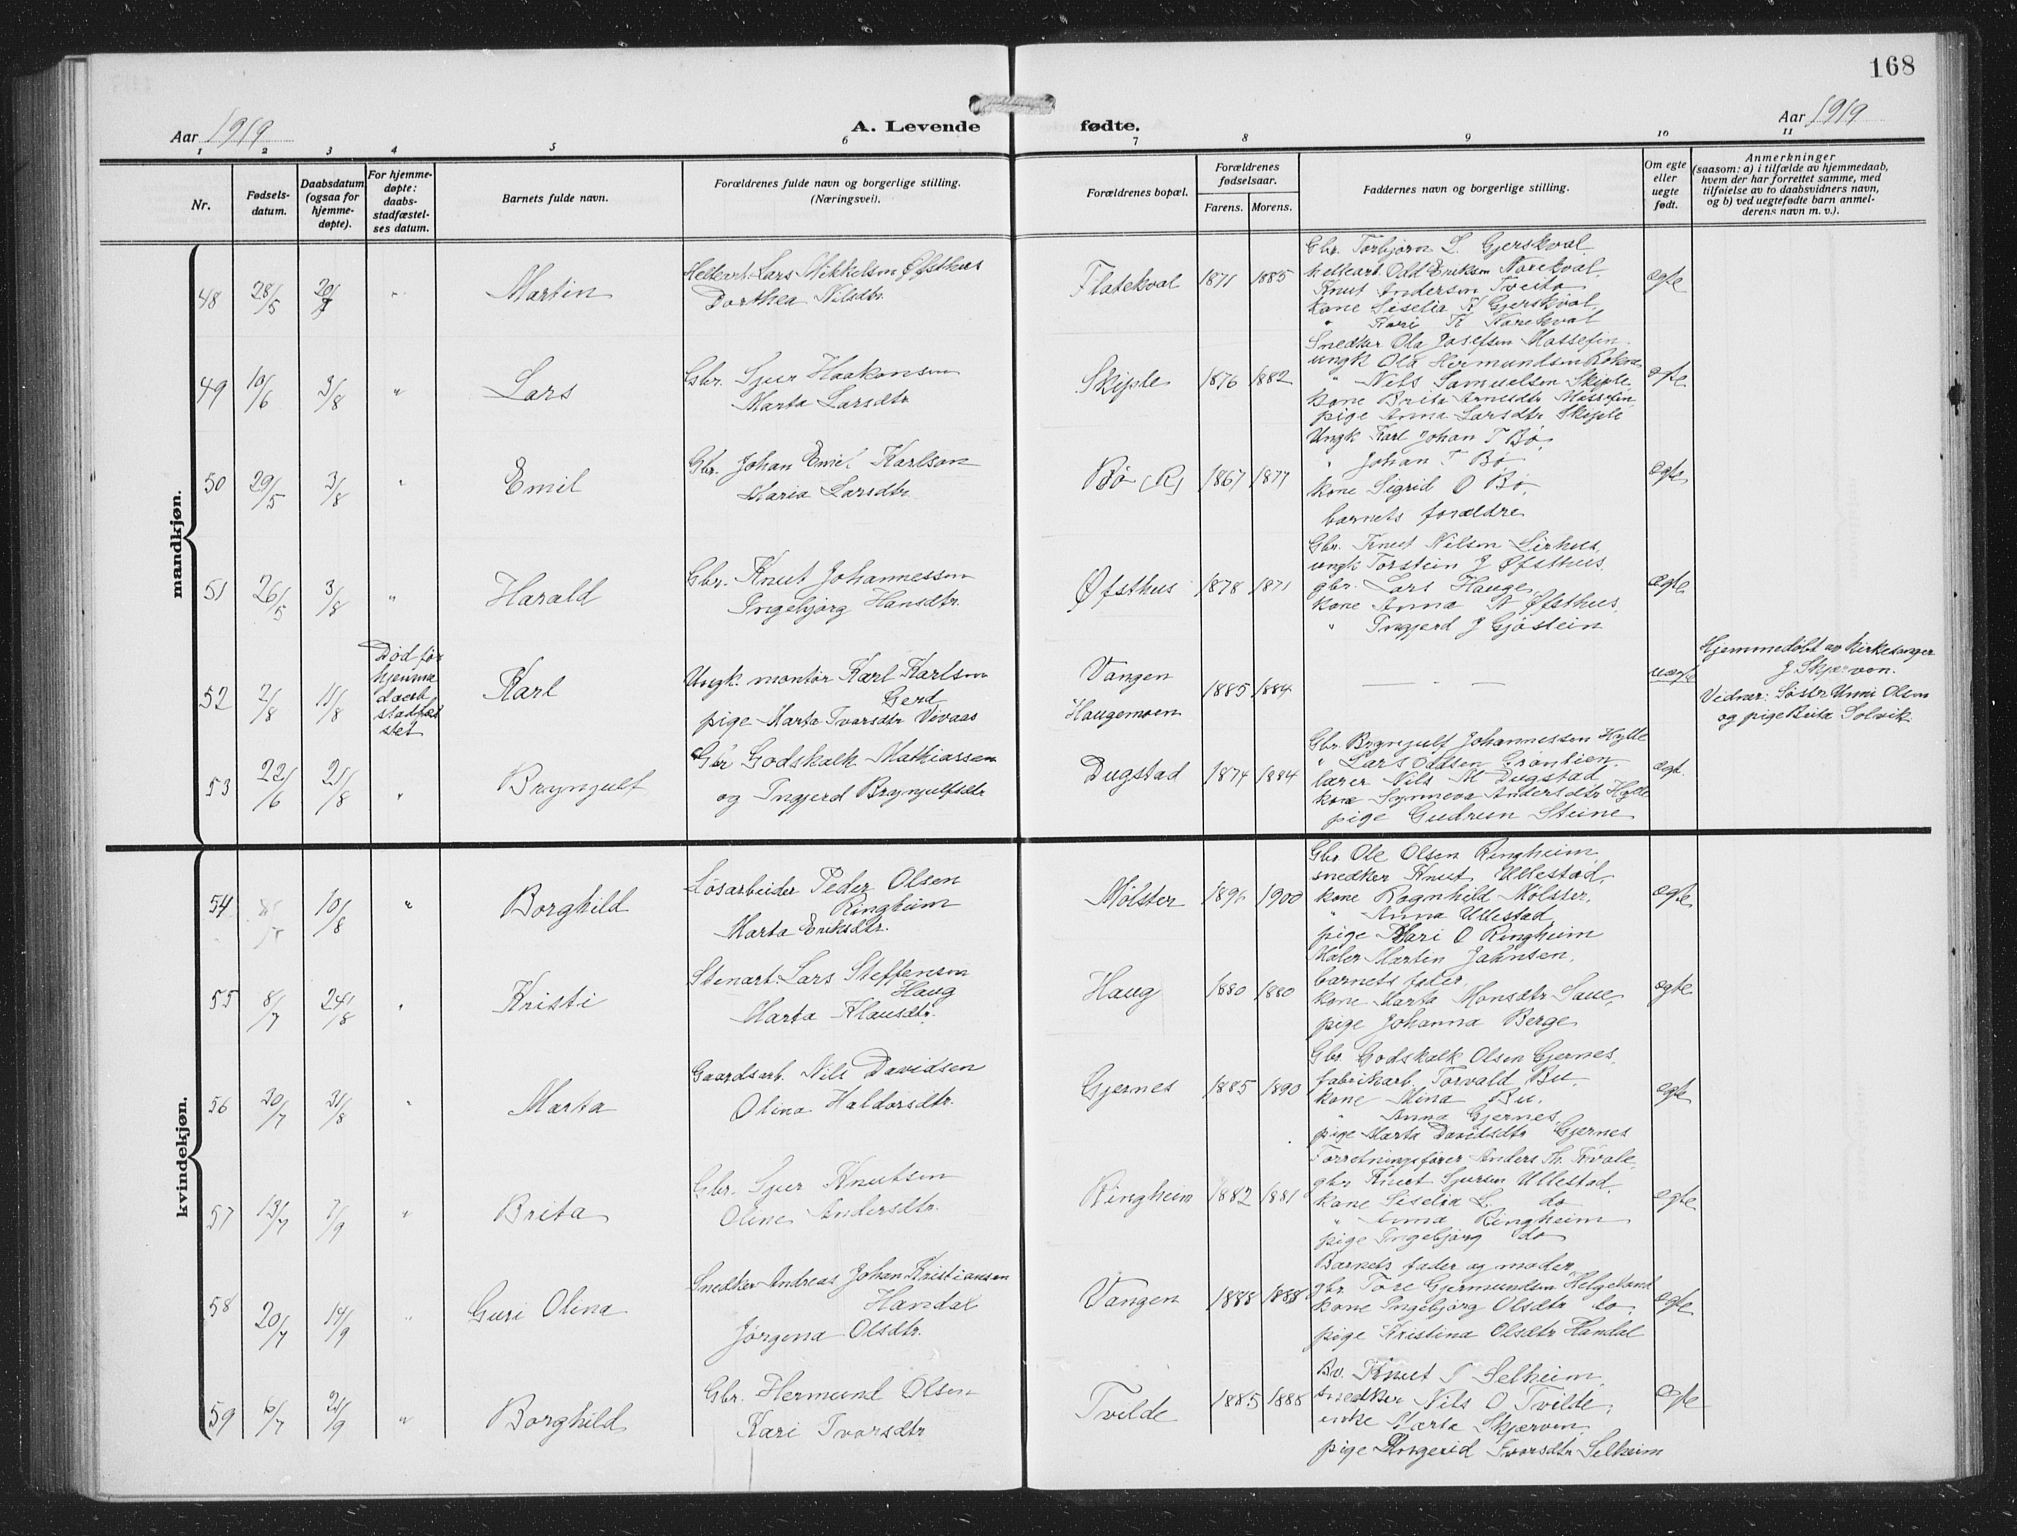 168
Aar 1919
A. Levende fødte.
Aar 1919
1 2 3 4 5 6 7 8 9 10 11
Nr.
Fødsels-
datum.
Daabsdatum
(ogsaa for
hjemme-
døpte).
For hjemme-
døpte:
daabs-
stadfæstel-
ses datum.
Barnets fulde navn.
Forældrenes fulde navn og borgerlige stilling.
(Næringsvei).
Forældrenes bopæl.
Forældrenes
fødselsaar.
Farens. Morens.
Faddernes navn og borgerlige stilling.
Om egte
eller
uegte
født.
Anmerkninger
(saasom: a) i tilfælde av hjemmedaab,
hvem der har forrettet samme, med
tilføielse av to daabsvidners navn,
og b) ved uegtefødte barn anmel-
derens navn m. v.).
mandkjøn.
48 28/5 20/7 " Martin
Lars Mikkelsen Øfsthus
Dorthea Nilsdtr.
Flatekval 1871 1885
Gbr. Torbjørn L. Gjerskval
Odd Eriksen Norekval,
Knut Andersen Tveito
kone Siselia K Gjerskval,
" Kari K Norekval
egte
49 10/6 3/8 " Lars
Gbr. Sjur Haakonsen
Marta Larsdtr.
Skiple 1876 1882
Snedker Ola Josefsen Massefin,
ungk Ola Hermundsen
" Nils Samuelsen Skiple,
kone Brita Arnesdtr Massefin,
pige Anna Larsdtr Skiple
egte
50 29/5 3/8 " Emil
Gbr. Johan Emil Karlson
Maria Larsdtr.
Bø (R) 1867 1877
Ungk Karl Johan T Bø,
" Johan T Bø,
kone Sigrid O Bø,
barnets forældre
egte
51 26/5 3/8 " Harald
Gbr. Knut Johannessen
Ingebjørg Hansdtr.
Øfsthus 1878 1871
Gbr. Knut Nilsen Lirhus,
ungk Torstein J Øfsthus,
gbr. Lars Hauge,
kone Anna N Øfsthus,
" Ingjerd J Gjøstein
egte
52 2/8 11/8
Død før
hjemme
daab
stadfæ
stet
Karl
Ungk. montør Karl Karlsen
Gerd
pige Marta Ivarsdtr Vivaas
Vangen
Haugamoen
1885 1884
uegte
Hjemmedøbt av Kirkesanger
J Skjerven.
Vidner: Søster Unni Olsen
og pige Brita Solvik.
53 22/6 21/8 " Brynjulf
Gbr Godskalk Mathiassen
og Ingjerd Brynjulfsdtr
Dugstad 1874 1884
Gbr. Brynjulf Johannessen Hylle
" Lars Oddsen Grønlien,
lærer Nils M Dugstad,
kone Synneva Andersdtr Hylle
pige Gudrun Steine
egt.
kvindekjøn.
54 10/8 " Borghild
Løsarbeider Peder Olsen
Ringheim
Marta Eriksdtr.
Mølster 1896 1900
Gbr Ole Olsen Ringheim,
snedker Knut Ullestad,
kone Ragnhild Mølster,
" Anna Ullestad
pige Mari O Ringheim
egte
55 8/7 24/8 " Kristi
Stenarb. Lars Steffensen
Haug
Marta Klausdtr.
Haug 1880 1880
Maler Martin Jahnsen,
barnets fader,
kone Marta Monsdtr Saue,
pige Johanna Berge
egte
56 20/7 31/8 " Marta
Gaardsarb. Nils Davidsen
Olina Haldorsdtr.
Gjernes 1885 1890
Gbr. Godskalk Olsen Gjernes,
fabrikarb. Torvald Bu,
kone Mina Bu,
" Anna Gjernes,
pige Marta Davidsdtr Gjernes
egte
57 13/7 7/9 " Brita
Gbr. Sjur Knutsen
Oline Andersdtr.
Ringheim 1882 1881
Forretningsfører Anders Th. Kvale,
gbr Knut Sjursen Ullestad,
kone Siselia L. do
" Anna Ringheim
pige Ingebjørg do
egte
58 20/7 14/9 " Guri Olina
Snedker Andreas Johan Kristiansen
Handal
Jørgena Olsdtr.
Vangen 1888 1888
Barnets fader og moder,
gbr Tore Gjermundsen Helgeland
kone Ingebjørg Olsdtr do,
pige Kristina Olsdtr Handal
egte
59 6/7 21/9 " Borghild
Gbr. Hermund Olsen
Kari Ivarsdtr
Tvilde 1885 1888
Bv. Knut T Selheim,
snedker Nils O Tvilde,
enke Marta Skjerven,
pige Angerid Ivarsdtr Selheim
egte